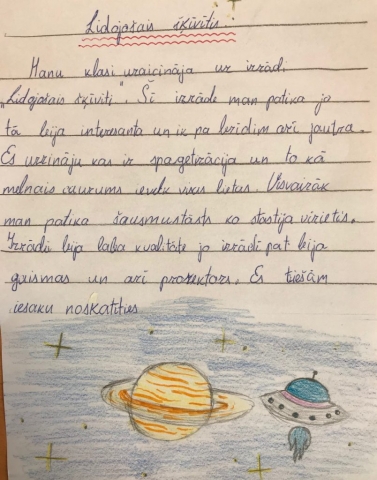 Lidojošais šķīvītis
Manu klasi uzaicināja uz izrādi
„Lidojošais šķīvīti". Šī izrāde man patika jo
tā bija interesanta un ik pa brīdim arī jautra.
Es uzzināju kas ir spagetizācija un to kā
melnais caurums ievelk visas lietas. Visvairāk
man patika šausmustāsts ko stāstīja vīrietis.
Izrādei bija laba kvalitāte jo izrādē pat bija
gaismas un arī prožektors. Es tiešām
iesaku noskatīties